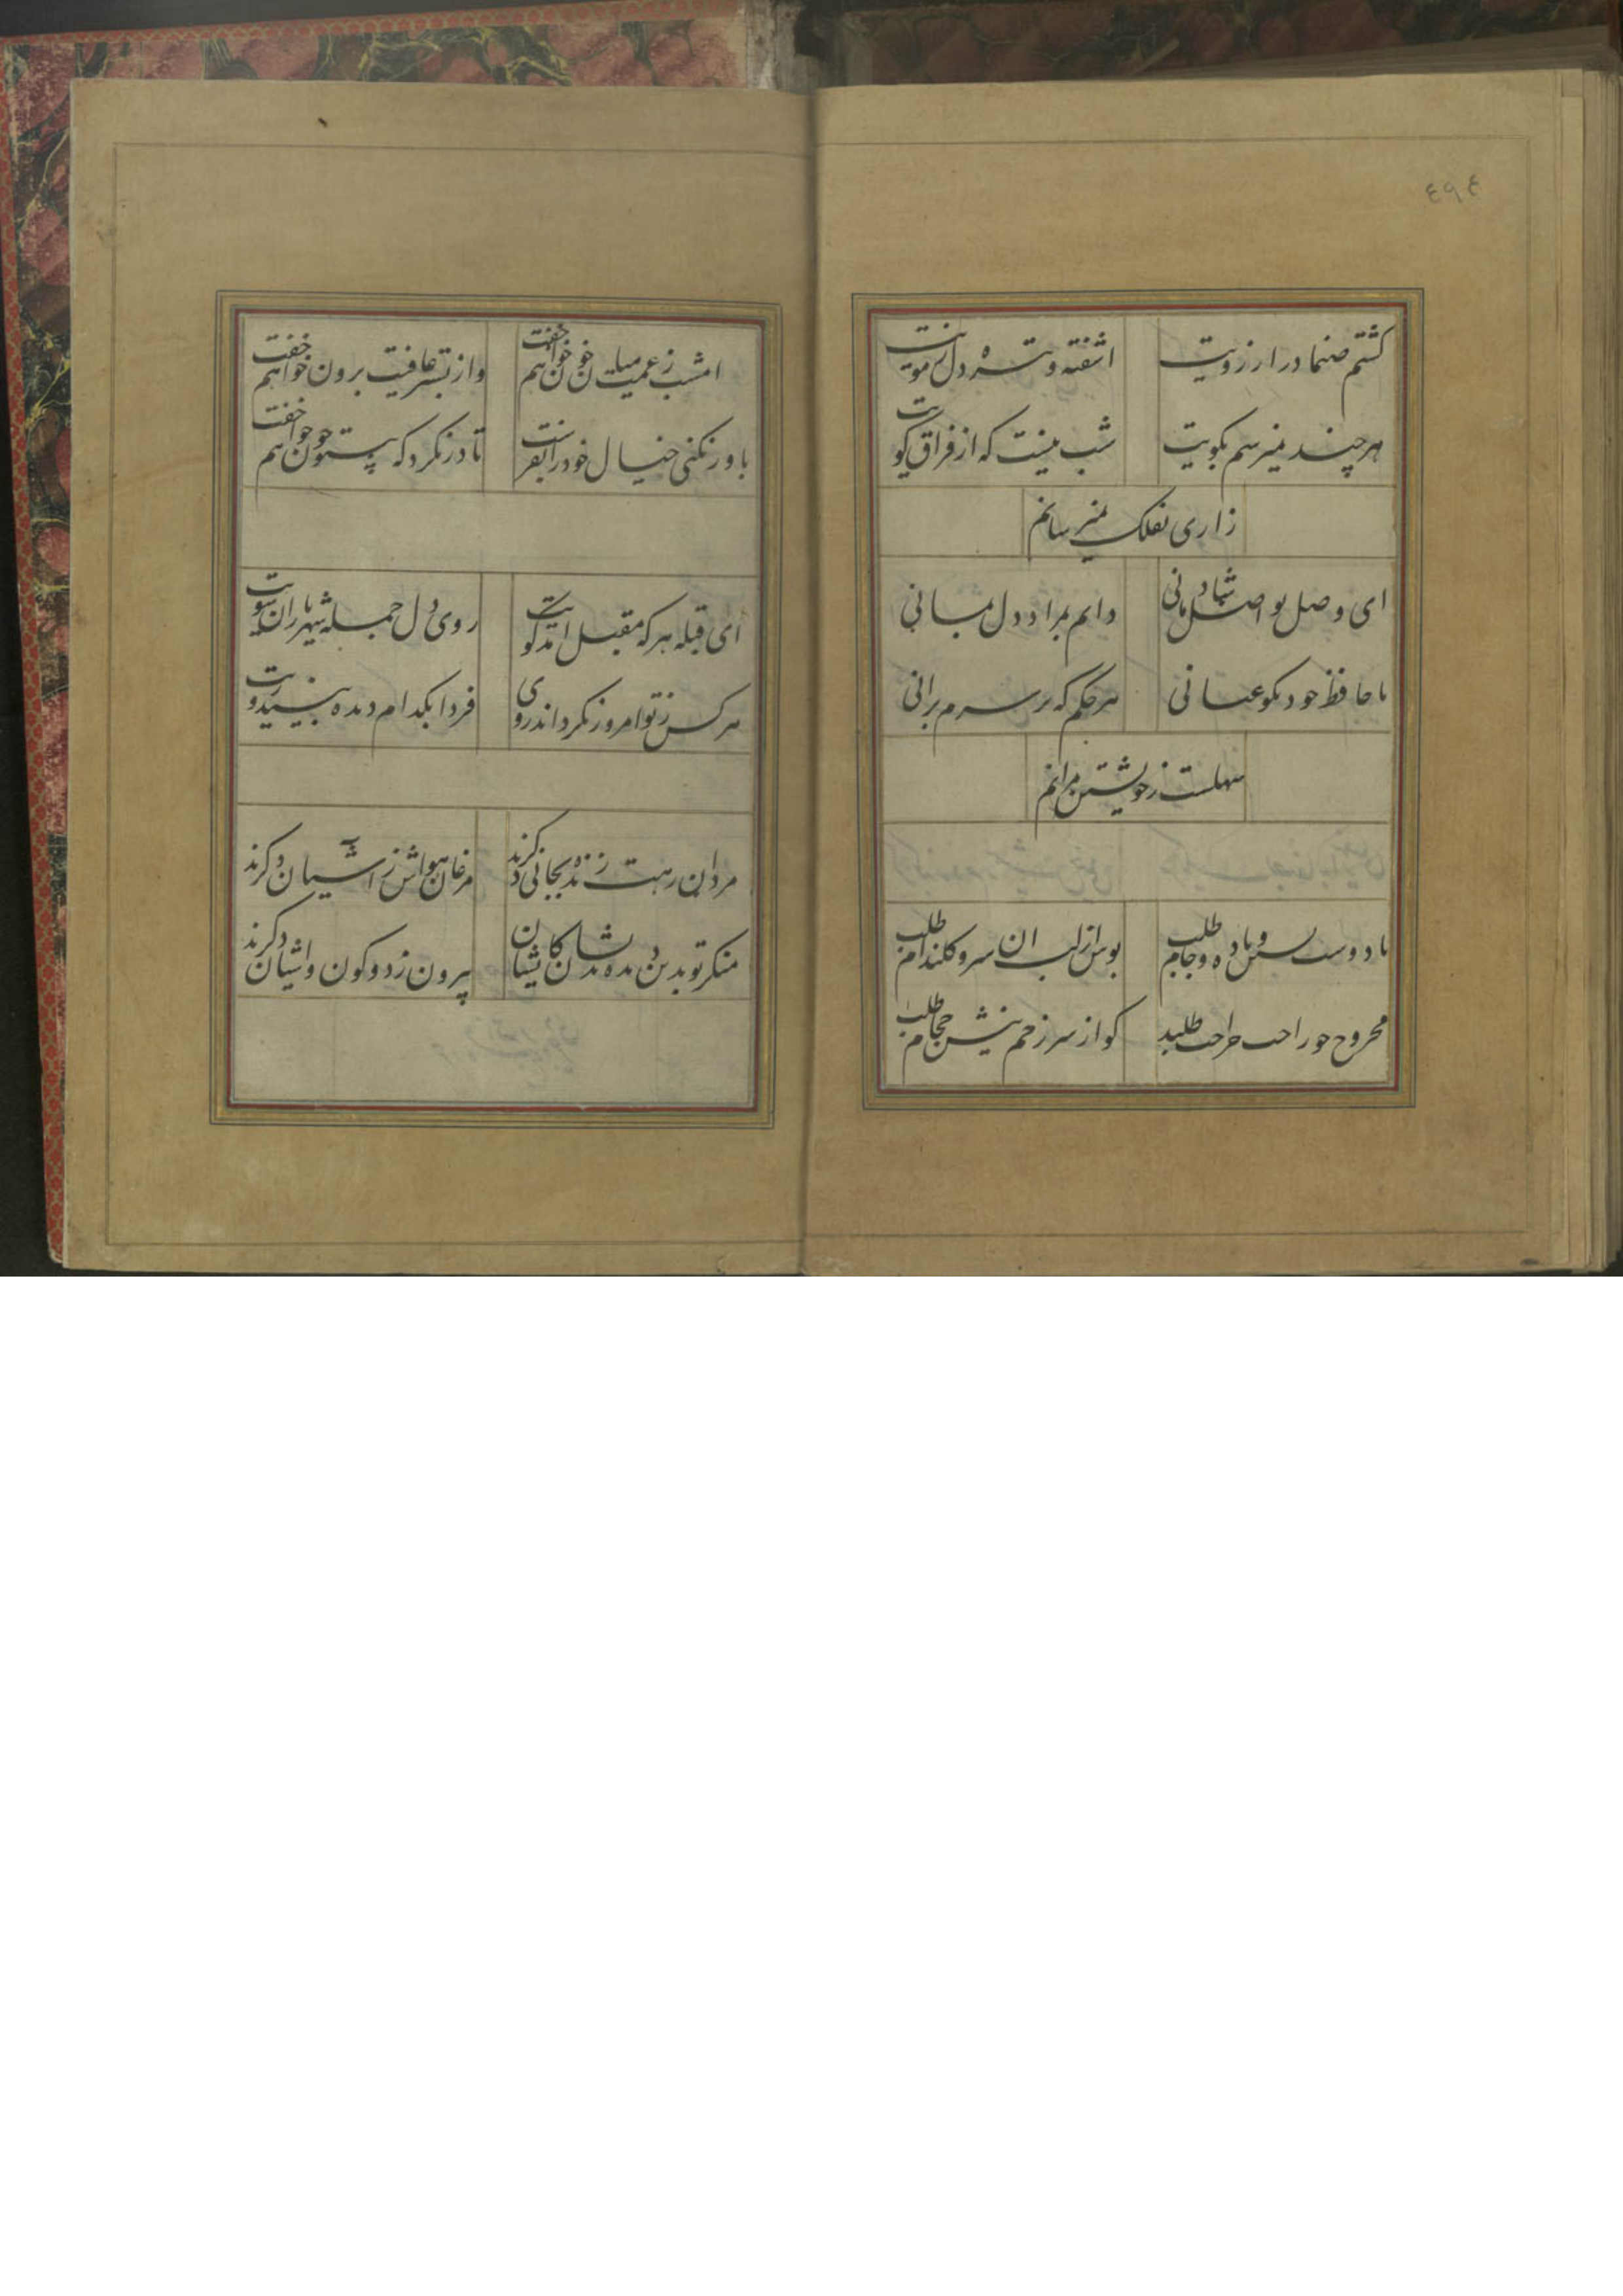 ٤٩٤
کشتم صنما در ارزویت
اشفته و تیره دل زمویت
هرچند نمیرسم بکویت
شب نیست که از فراق کویت
زاری بفلک نمیرسانم
ای وصل تو اصل شادمانی
دایم بمراد دل بمانی
با حافظ خود نکو عنانی
هر حکم که بر سرم برانی
سهلست زخویشتن مرانم
با دوست نشین و باده و جام طلب
بوس از لب ان سرو کلندام طلب
مجروح چو راحت جراحت طلبد
کو از سر زخم نیش حجام طلب
امشب زغمت میان خون خواهم خفت
واز بستر عافیت برون خواهم خفت
باور نکنی خیال خود را بفرست
تا درنکرد که بیتو چون خواهم خفت
ای قبله هرکه مقبل امد کویت
روی دل جمله شهریاران سویت
هرکس زتو امروز نکرداند روی
فردا بکدام دیده بیند رویت
مردان رهت زنده بجانی دکرند
مرغان هواش زاشیان دکرند
منکر تو بدین دیده بدیشان کایشان
بیرون زدو کون و اشیان دکرند